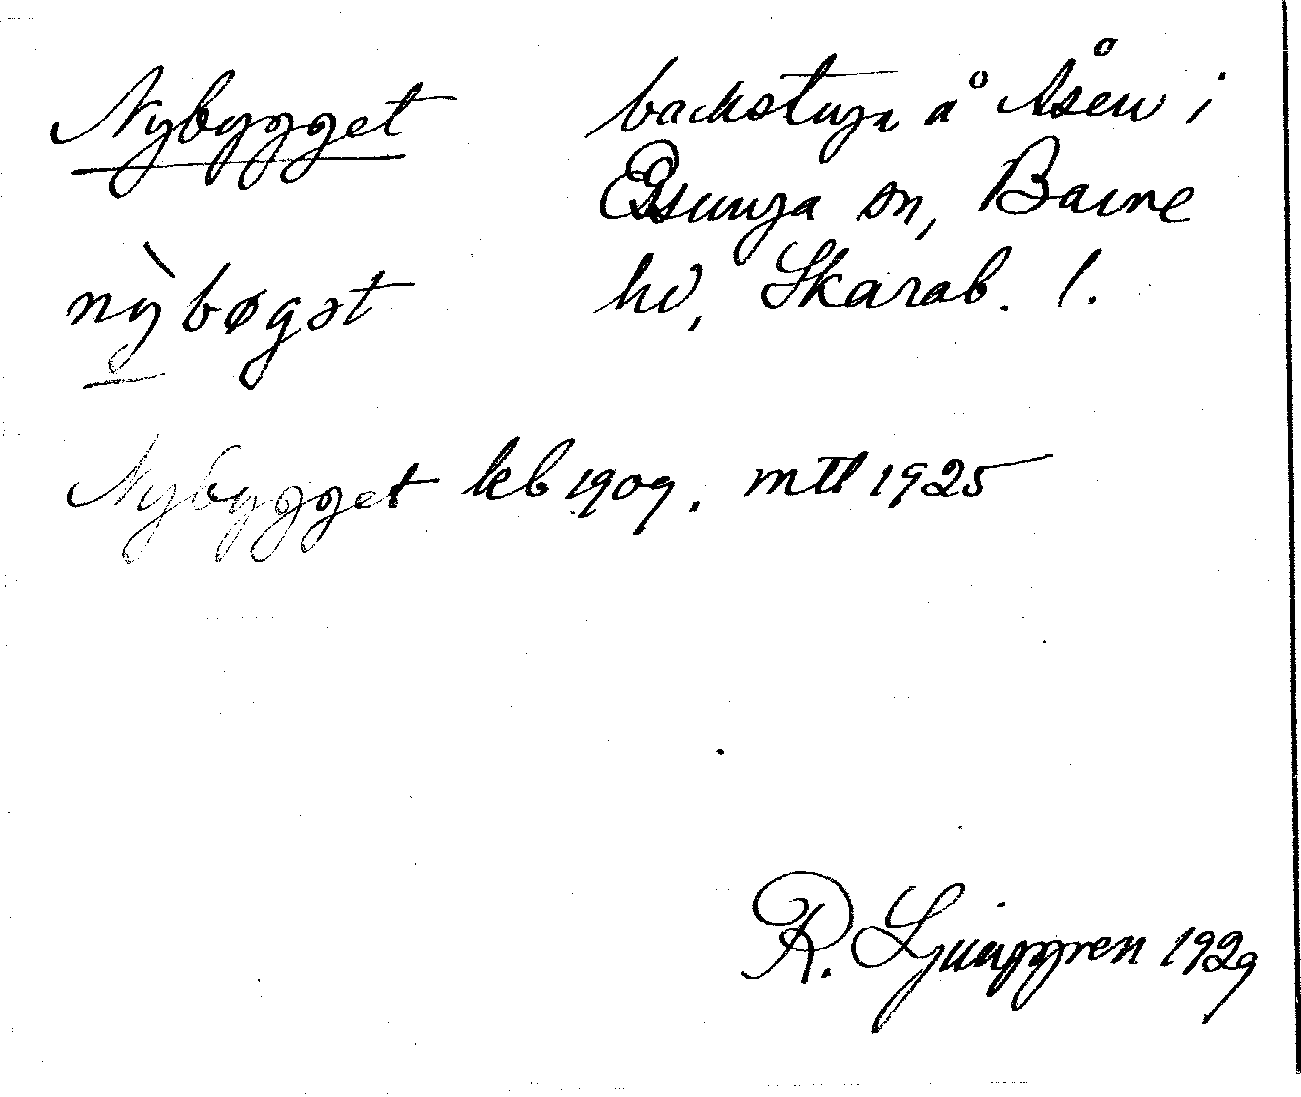 Nybygget backstuga å Åsen i
Essunga sn, Barne
nỳbøgət hd, Skarab. l.
Nybygget kb 1909. mtl 1925
R. Ljunggren 1929